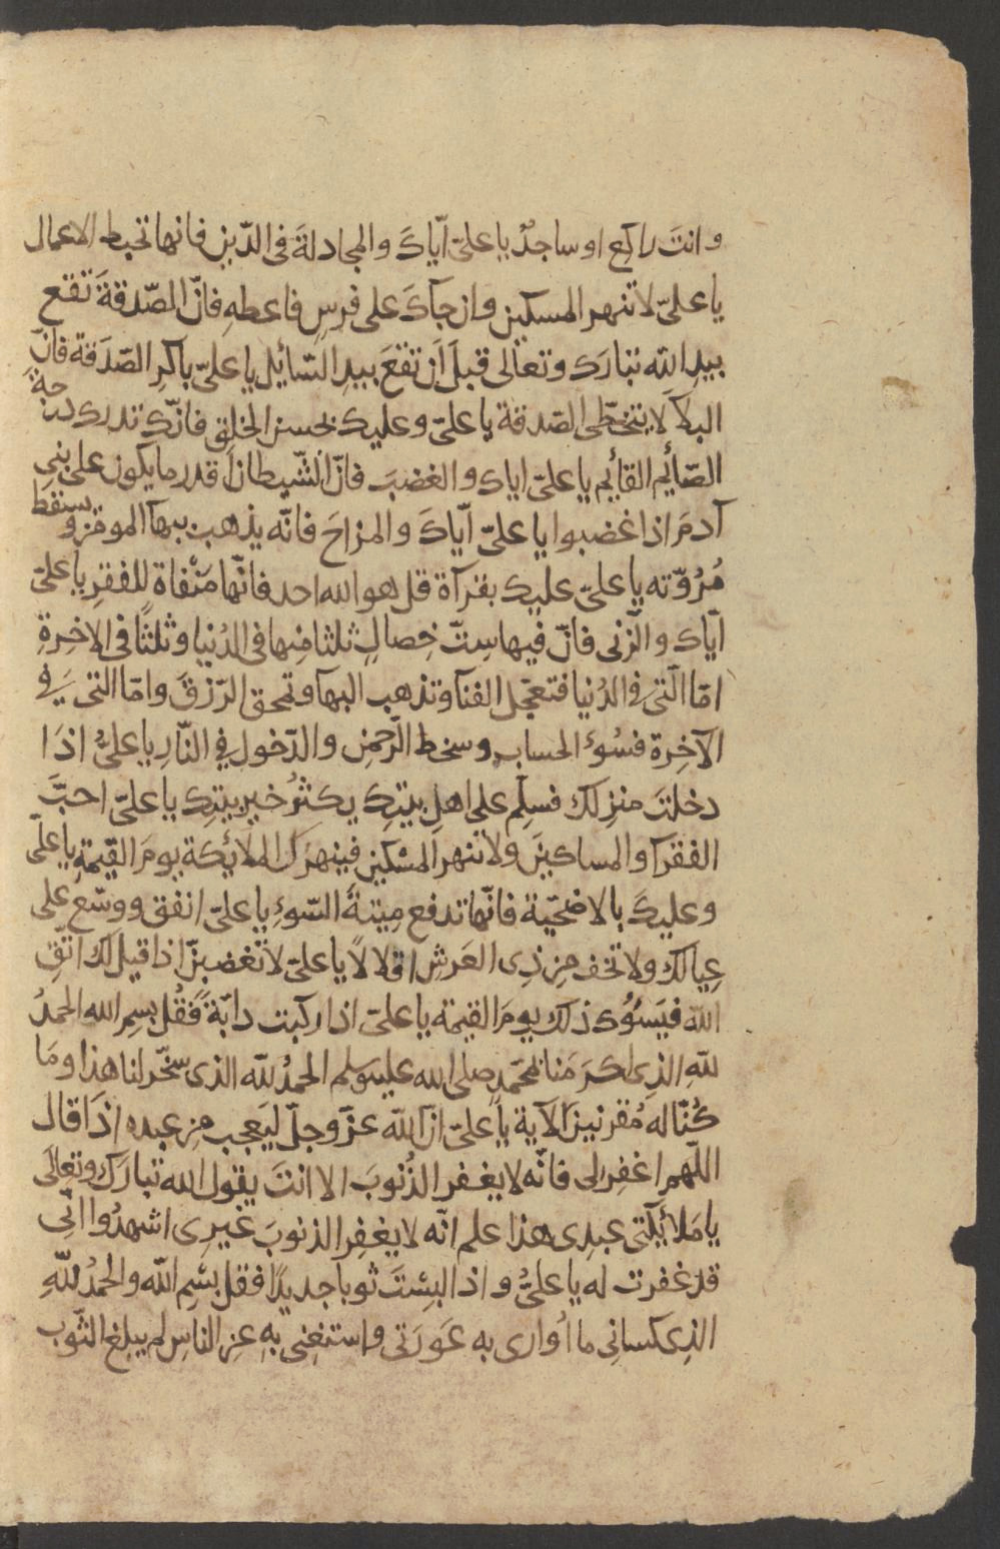 وانتَ راكع او ساجدٌ يا علىّ ايّاكَ والمجادلةَ فى الدّين فانها تحبط الاعمال
يا علىّ لا تنهر المسكين وان جآكَ على فرسٍ فاعطهِ فانّ الصّدقةَ تقع
بيدِ الله تبارَك وتعالى قبلَ اَن تقعَ بيدِ السّآئِل يا علىّ باكرِ الصّدَقة فانّ
البلآَ لا يتخطّى الصّدقة يا علىّ وعليك بحسن الخلق فانّك تدرك درجة
الصّائِم القائِم يا علىّ اياك والغضبَ فانّ الشّيطان اَقدر ما يكون على بنى
آدمَ اذا غضبوا يا علىّ ايّاكَ والمزاحَ فانّه يذهب ببهآ المومن ويسقط
مُرُوّته يا علىّ عليك بقرآة قل هو الله احد فانّها مَنْفاة للفقرِ يا علىّ
ايّاك والزّنى فانّ فيها سِتّ خِصالٍ ثلثا منها فى الدُنيا وثلثًا فى الاخِرةِ
امّا الّتى فى الدُنيا فتعجّل الفنآ وتذهب البها وتمحق الرّزقَ وامّا التى فى
الآخِرة فسُوءُ الحساب وسخط الرّحمن والدّخول فى النّارِ يا علىُّ اذَا
دخلتَ منزِلك فسلِّم على اهلِ بيتِك يكثرُ خير بيتِك يا علىّ احبَّ
الفقرآ والمساكينَ ولا تنهر المسْكين فينهرَك الملائِكة يومَ القيمةِ يا علىّ
وعليكَ بالاضحيّة فانّها تدفع مِيتةَ السّوءِ يا علىّ انفق ووسّع على
عِيالك ولا تخف مِن ذِى العَرشِ اقلالًا يا علىّ لا تغضبنّ اذا قيل لك اتّقِ
الله فيَسُوُك ذلك يومَ القيمة يا علىّ اذا ركبت دابّةً فقُل بسمِ الله الحمدُ
للهِ الذِى اكرَمَنا بمحمّدٍ صلى الله عليه وسلم الحمدُ للهِ الذى سخّر لنا هذا ومَا
كُنّا له مُقرنينَ الآية يا علىّ انّ اللهَ عزّ وجلّ ليَعجب مِن عبدِه اذَا قال
اللّهم اغفِر لى فانّه لا يغفر الذُنوبَ الا انتَ يقول الله تبارَك وتعالَى
يا مَلائِكتى عبدِى هذا علم انّه لا يغفِر الذنوبَ غيرِى اشهدُوا انِّى
قد غفرت له يا علىُّ واذا البِسْتَ ثوبا جديدًا فقل بسْمِ الله والحمدُ للّهِ
الذِى كسانِى ما اُوارى به عَورَتى واستغنِى بهِ عنِ الناسِ لم يبلغ الثّوب